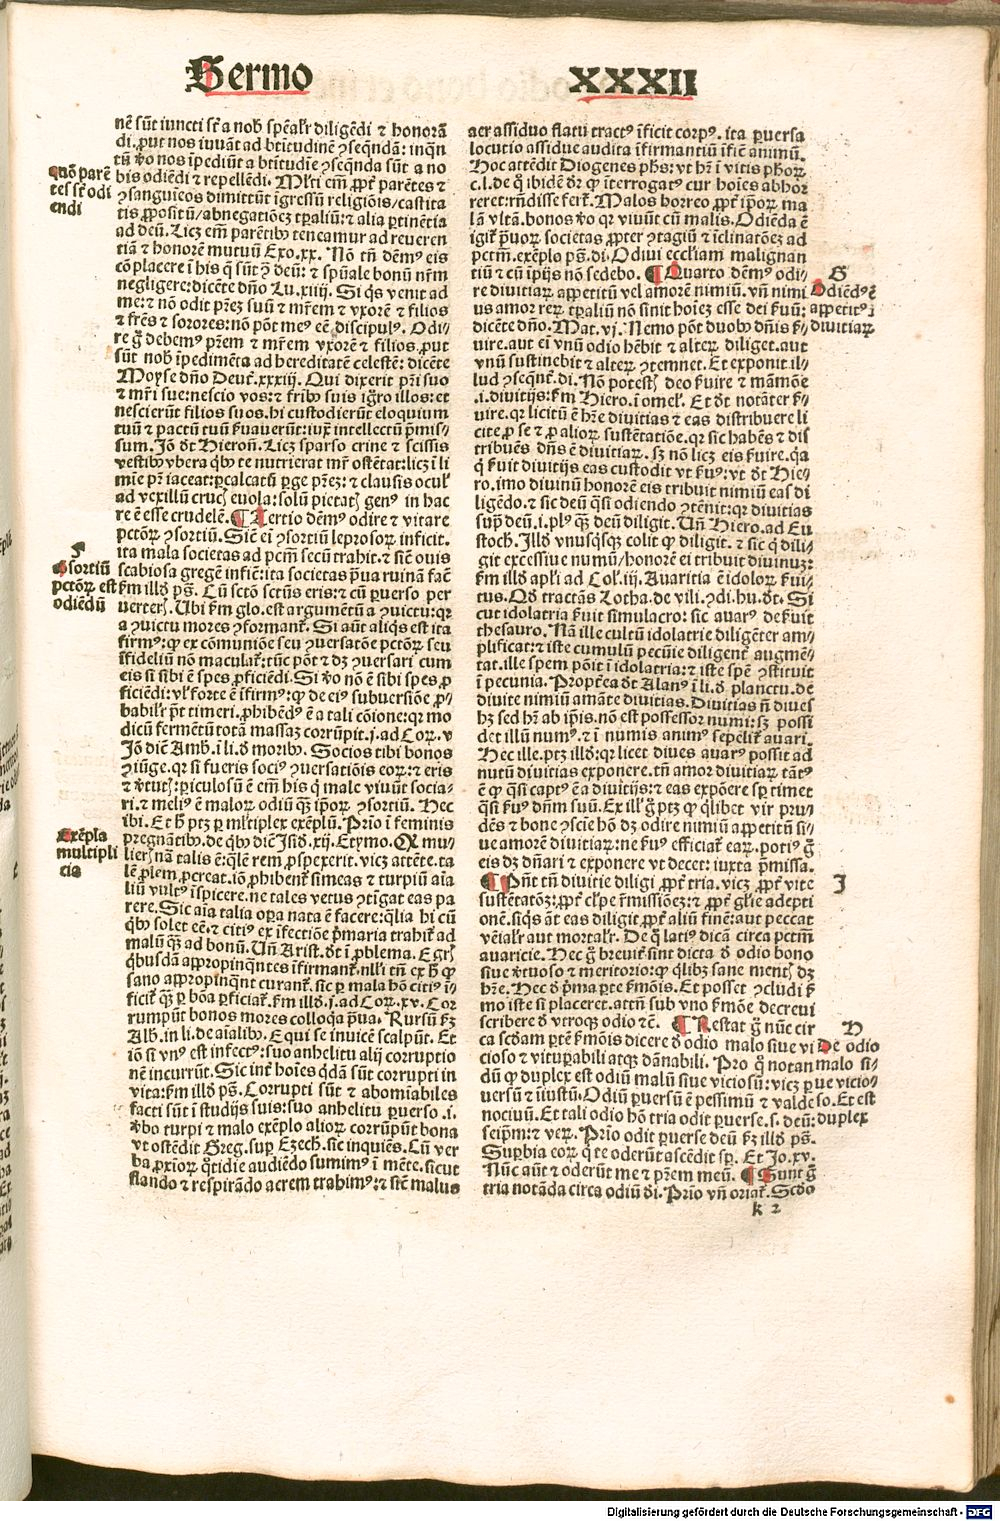 Sermo XXXII
nē sūt iuncti sc̄ a nob̄ speāłr diligēdi ⁊ honorā
di. put nos iuuāt ad btitudinē ꝯseq̄ndā: inqn̄
tū v̄o nos īpediūt a btitudīe ꝯseq̄nda sūt a no
bis odiēdi ⁊ repellēdi. Młti em̄ ꝓpt̄ parētes ⁊
ꝯsanguīeos dimittūt īgressū religiōis/castita
tis ꝓpositū/abnegatiōeꝫ tꝑaliū: ⁊ alia ꝑtinētia
ad deū. Licꝫ em̄ parētibꝰ teneamur ad reueren
tiā ⁊ honorē mutuū Exo.xx. Nō tn̄ dēmꝰ eis
cōplacere ī his q̄ sūt ꝯ̄ deū: ⁊ spūale bonū nr̄m
negligere: dicēte dn̄o Lu.xiiij. Si q̄s venit ad
me: ⁊ nō odit pr̄eꝫ suū ⁊ mr̄em ⁊ vxorē ⁊ filios
⁊ fr̄es ⁊ sorores: nō pōt meꝰ eē discipulꝰ. Odi⸗
re g̊ debemꝰ pr̄em ⁊ mr̄em vxorē ⁊ filios, put
sūt nob̄ īpedimēta ad hereditatē celestē: dicēte
Moyse dn̄o Deut̄.xxxiij. Qui dixerit pr̄i suo
⁊ mr̄i sue: nescio vos: ⁊ fr̄ibꝰ suis īgro illos: et
nescierūt filios suos. hi custodierūt eloquium
tuū ⁊ pactū tuū ẜuauerūt: iuxͭ intellectū p̄mis⸗
sum. Iō dt̄ Hieron̄. Licꝫ sparso crine ⁊ scissis
vestibꝰ vbera q̄bꝰ te nutrierat mr̄ ostētat: licꝫ ī li
mīe pr̄ iaceat: ꝑcalcatū ꝑge pr̄eꝫ: ⁊ clausis ocuł
ad vexillū crucꝭ euola: solū pietatꝭ genꝰ in hac
re ē esse crudelē. ¶ Tertio dēmꝰ odire ⁊ vitare
pctōꝝ ꝯsortiū. Sic̄ ei ꝯsortiū leprosoꝝ inficit.
ita mala societas ad pcm̄ secū trahit. ⁊ sic̄ ouis
scabiosa gregē inficit: ita societas p̄ua ruinā fac̄
ẜm illd̄ ps̄. Cū sctō sctūs eris: ⁊ cū ꝑuerso per
uerterꝭ. Ubi ẜm glo. est argumētū a ꝯuictu: qꝛ
a ꝯuictu mores ꝯformant̄. Si aūt aliq̄s est ita
firmꝰ: ꝙ ex cōmuniōe seu ꝯuersatōe pctōꝝ seu
īfideliū nō maculat̄: tūc pōt ⁊ dꝫ ꝯuersari cum
eis si sibi ē spes ꝓficiēdi. Si v̄o nō ē sibi spes ꝓ
ficiēdi: vł forte ē īfirmꝰ: ꝙ de eiꝰ subuersiōe ꝓ⸗
babilr̄ pt̄ timeri. ꝓhibēdꝰ ē a tali cōione: qꝛ mo
dicū fermētū totā massaꝫ corrūpit. j. ad Cor. v
Iō dic̄ Amb. ī li. d̄ moribꝰ. Socios tibi bonos
ꝯiūge. qꝛ si fueris sociꝰ ꝯuersatiōis eoꝝ: ⁊ eris
⁊ v̄tutꝭ: piculosū ē em̄ his q̄ male viuūt socia⸗
ri. ⁊ meliꝰ ē maloꝝ odiū qꝫ ip̄oꝝ ꝯsortiū. Hec
ibi. Et h̄ ptꝫ ꝑ młtiplex exēplū. Prio ī feminis
pregnātibꝰ. de q̄bꝰ dic̄ Isid̄. xij. Etymo. Q mu⸗
lierꝭ nā talis ē: q̄lē rem ꝓspexerit. vicꝫ attēte. ta
lē ꝓlem ꝓcreat. iō ꝓhibent̄ simeas ⁊ turpiū aīa
liū vultꝰ īspicere. ne tales vetus ꝯtigat eas pa
rere. Sic aīa talia oꝑa nata ē facere: q̄lia hi cū
q̄bꝰ solet eē. ⁊ citiꝰ ex īfectiōe p̄maria trahit̄ ad
malū qꝫ ad bonū. Un̄ Arist. dt̄ ī ꝓblema. Egrꝭ
q̄busdā appropinq̄ntes īfirmant̄. nłli tn̄ ex h̄ ꝙ
sano appropinq̄nt curant̄. sic ꝑ mala hō citiꝰ ī⸗
ficit̄ qꝫ ꝑ bōa ꝑficiat̄. ẜm illd̄ .j. ad Cor. xv. Cor
rumpūt bonos mores colloq̄a p̄ua. Rursū ẜꝫ
Alb. in li. de aīalibꝰ. Equi se inuicē scalpūt. Et
iō si vnꝰ est infectꝰ: suo anhelitu alij corruptio
nē incurrūt. Sic int̄ hoīes q̄dā sūt corrupti in
vita: ẜm illd̄ ps̄. Corrupti sūt ⁊ abomīabiles
facti sūt ī studijs suis: suo anhelitu ꝑuerso .i.
v̄bo turpi ⁊ malo exēplo alioꝝ corrūpūt bona
vt ostēdit Greg. suꝑ Ezech. sic inquiēs. Cū ver
ba ꝓxioꝝ q̊tidie audiēdo sumimꝰ ī mēte. sicut
flando ⁊ respirādo aerem trahimꝰ: ⁊ sic̄ malus
aer assiduo flatu tractꝰ īficit corpꝰ. ita ꝑuersa
locutio assidue audita īfirmantiū īfic̄ animū.
Hoc attēdit Diogenes phs̄: vt hr̄ ī vitis phoꝝ
c. l. de q̊ ibidē dr̄ ꝙ īterrogatꝰ cur hoīes abhor
reret: rn̄disse fert̄. Malos horreo ꝓpt̄ ip̄oꝝ ma
lā vitā. bonos v̄o qꝛ viuūt cū malis. Odiēda ē
igit̄ p̄uoꝝ societas ꝓpter ꝯtagiū ⁊ īclinatōeꝫ ad
pctm̄. exēplo ps̄. di. Odiui ecclīam malignan
tiū ⁊ cū īpijs nō sedebo. ¶ Quarto dēmꝰ odi⸗
re diuitiaꝝ appetitū vel amorē nimiū. vn̄ nimi
us amor reꝝ tꝑaliū nō sinit hoīeꝫ esse dei ẜuū:
dicēte dn̄o. Mat. vj. Nemo pōt duobꝰ dn̄is ẜ⸗
uire. aut ei vnū odio hēbit ⁊ alteꝝ diliget. aut
vnū sustinebit ⁊ alteꝝ ꝯtemnet. Et exponit il⸗
lud ꝯseqn̄t̄. di. Nō potestꝭ deo ẜuire ⁊ māmōe
.i. diuitijs: ẜm Hiero. ī omeł. Et dt̄ notāter ẜ⸗
uire. qꝛ licitū ē hr̄e diuitias ⁊ eas distribuere li
cite ꝓ se ⁊ ꝓ alioꝝ sustētatiōe. qꝛ sic habēs ⁊ dis
tribuēs dn̄s ē diuitiaꝝ. sꝫ nō licꝫ eis ẜuire. q̄a
q̄ ẜuit diuitijs eas custodit vt ẜuꝰ: vt dt̄ Hie⸗
ro. imo diuinū honorē eis tribuit nimiū eas di
ligēdo. ⁊ sic deū q̄si odiendo ꝯtēnit: qꝛ diuitias
suꝑ deū .i. plꝰ qꝫ deū diligit. Un̄ Hiero. ad Eu
stoch. Illd̄ vnusq̄sqꝫ colit ꝙ diligit. ⁊ sic q̄ dili⸗
git excessiue numū/honorē ei tribuit diuinuꝫ:
ẜm illd̄ apłi ad Coł. iij. Auaritia ē idoloꝝ ẜui⸗
tus. Qd̄ tractās Cotha. de vili. ꝯdi. hu. dt̄. Si
cut idolatria ẜuit simulacro: sic auarꝰ de ẜuit
thesauro. Nā ille cultū idolatrie diligēter am⸗
plificat: ⁊ iste cumulū pecūie diligent̄ augmē⸗
tat. ille spem pōit ī idolatria: ⁊ iste spē ꝯstituit
ī pecunia. Propt̄ea dt̄ Alanꝰ ī li. d̄ planctu. de
diuite nimiū amāte diuitias. Diuitias n̄ diues
hꝫ sed hr̄ ab ip̄is. nō est possessor numi: sꝫ possi
det illū numꝰ. ⁊ ī numis animꝰ sepelit̄ auari.
Hec ille. ptꝫ illd̄: qꝛ licet diues auarꝰ possit ad
nutū diuitias exponere. tn̄ amor diuitiaꝝ tātꝰ
ē ꝙ qsi captꝰ ē a diuitijs: ⁊ eas expōere sꝑ timet
q̄si ẜuꝰ dn̄m suū. Ex ill̄ g̊ ptꝫ ꝙ q̄libet vir pru⸗
dēs ⁊ bone ꝯscīe hō dꝫ odire nimiū appetitū si⸗
ue amorē diuitiaꝝ: ne ẜuꝰ efficiat̄ eaꝝ. potiꝰ g̊
eis dꝫ dn̄ari ⁊ exponere vt decet: iuxta p̄missa.
¶ Pn̄t tn̄ diuitie diligi ꝓpt̄ tria. vicꝫ ꝓpt̄ vite
sustētatōꝫ: ꝓpt̄ cłpe r̄missiōeꝫ: ⁊ ꝓpt̄ gl̄ie adepti
onē. siq̄s aūt eas diligit ꝓpt̄ aliū finē: aut peccat
vēiałr aut mortałr. De q̊ latiꝰ dicā circa pctm̄
auaricie. Hec g̊ breuit̄ sint dicta d̄ odio bono
siue v̄tuoso ⁊ meritorio: ꝙ q̄libꝫ sane mentꝭ dꝫ
hr̄e. Hec d̄ p̄ma ꝑte ẜmōis. Et posset ꝯcludi ẜ
mo iste si placeret. attn̄ sub vno ẜmōe decreui
scribere d̄ vtroqꝫ odio ⁊c̄. ¶ Restat g̊ nūc cir
ca scd̄am ꝑtē ẜmōis dicere d̄ odio malo siue vi
cioso ⁊ vituꝑabili atqꝫ dānabili. Pro q̊ notan
dū ꝙ duplex est odiū malū siue viciosū: vicꝫ ꝑ
uersū ⁊ iiustū. Odiū ꝑuersū ē pessimū ⁊ valde
nociuū. Et tali odio hō tria odit ꝑuerse. s. deū:
seipm̄: ⁊ veꝝ. Prio odit ꝑuerse deū ẜꝫ illd̄ ps̄.
Supbia eoꝝ q̄ te oderūt ascēdit sꝑ. Et Jo. xv.
Nūc aūt ⁊ oderūt me ⁊ pr̄em meū. ¶ Sunt g̊
tria notāda circa odiū di. Prio vn̄ oriat̄. Scd̄o
k 2
quō parē
tes st̄ odi
endi
F
ꝯsortiū
pctōꝝ est
odiēdū
Exēpla
multipli
cia
G
Odiēdꝰ ē
appetitꝰ
diuitiaꝝ
I
H
De odio
malo si⸗
ue vicio⸗
so. Et est
duplex
Digitalisierung gefördert durch die Deutsche Forschungsgemeinschaft - DFG